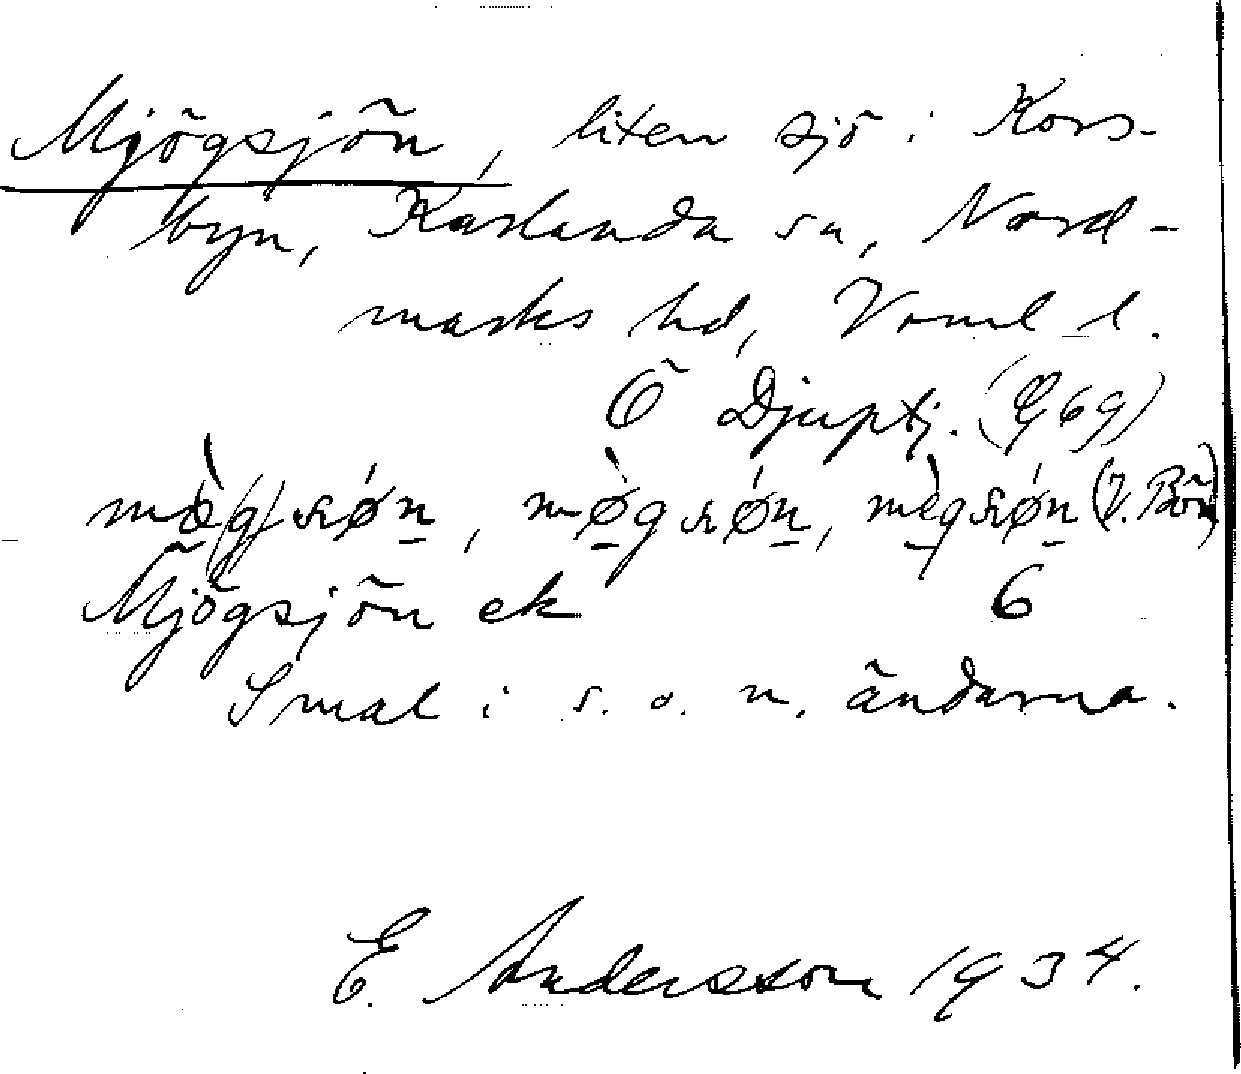 Mjögsjön, liten sjö i Kors-
byn, Karlanda sn, Nord-
marks hd, Vrml l.
Ö Djuptj. (G 69)
mø̀(g)søn, mø̀gsøn, mègsøn (V. Bön)
Mjögsjön ek 6
Smal i s. o. n. ändarna.
E. Andersson 1934.